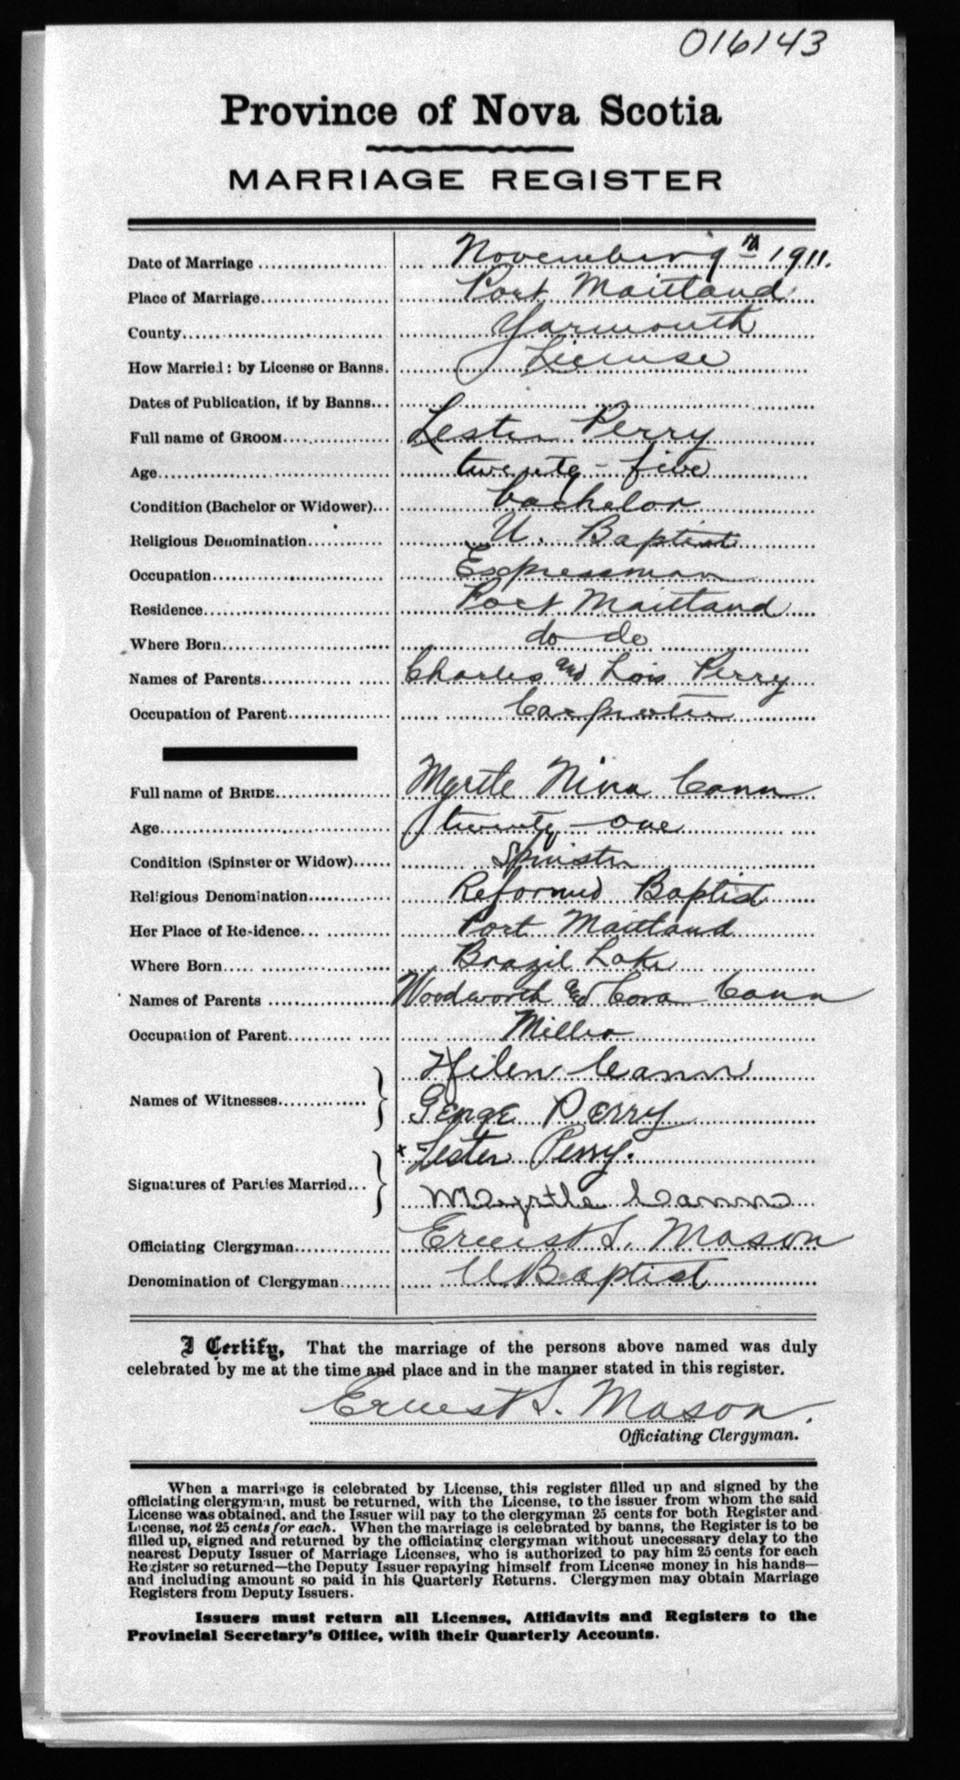 016143
Province of Nova Scotia
MARRIAGE REGISTER
Date of Marriage November 9th 1911.
Place of Marriage Port Maitland
County Yarmouth
How Married: by License or Banns. License
Dates of Publication, if by Banns
Full name of GROOM Lester Perry
Age twenty-five
Condition (Bachelor or Widower) bachelor
Religious Denomination U. Baptist
Occupation Expressman
Residence Port Maitland
Where Born do do
Names of Parents Charles and Lois Perry
Occupation of Parent Carpenter
Full name of BRIDE Myrtle Nina Cann
Age twenty-one
Condition (Spinster or Widow) Spinster
Religious Denomination Reformed Baptist
Her Place of Residence Port Maitland
Where Born Brazil Lake
Names of Parents Woodworth and Cora Cann
Occupation of Parent Miller
Names of Witnesses Helen Cann
George Perry
Signatures of Parties Married x Lester Perry.
Myrtle Cann
Officiating Clergyman Ernest S. Mason
Denomination of Clergyman U Baptist
I Certify, That the marriage of the persons above named was duly
celebrated by me at the time and place and in the manner stated in this register.
Ernest S. Mason.
Officiating Clergyman.
When a marriage is celebrated by License, this register filled up and signed by the
officiating clergyman, must be returned, with the License, to the issuer from whom the said
License was obtained, and the Issuer will pay to the clergyman 25 cents for both Register and
License, not 25 cents for each. When the marriage is celebrated by banns, the Register is to be
filled up, signed and returned by the officiating clergyman without unecessary delay to the
nearest Deputy Issuer of Marriage Licenses, who is authorized to pay him 25 cents for each
Register so returned—the Deputy Issuer repaying himself from License money in his hands—
and including amount so paid in his Quarterly Returns. Clergymen may obtain Marriage
Registers from Deputy Issuers.
Issuers must return all Licenses, Affidavits and Registers to the
Provincial Secretary's Office, with their Quarterly Accounts.